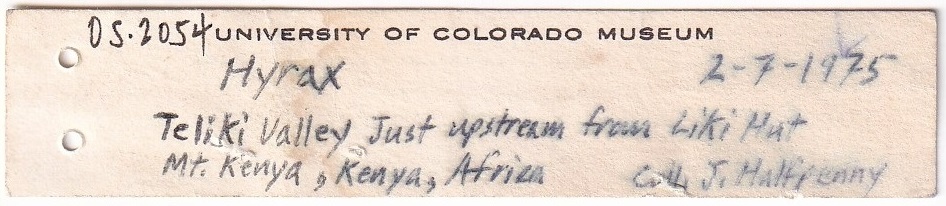 OS.2054 UNIVERSITY OF COLORADO MUSEUM
Hyrax 2-7-1975
Teliki Valley Just upstream from Liki Hut
Mt. Kenya, Kenya, Africa Coll. J. Halfpenny